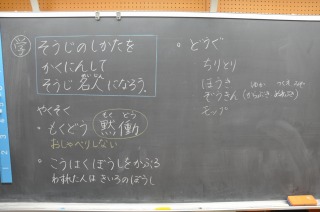 学
そうじのしかたを
かくにんして
そうじ名人になろう。
やくそく
・もくどう 黙働
もく どう
おしゃべりしない
・こうはくぼうしをかぶる
わすれた人は きいろのぼうし
・どうぐ
ちりとり
ほうき
ぞうきん(からぶき
モップ